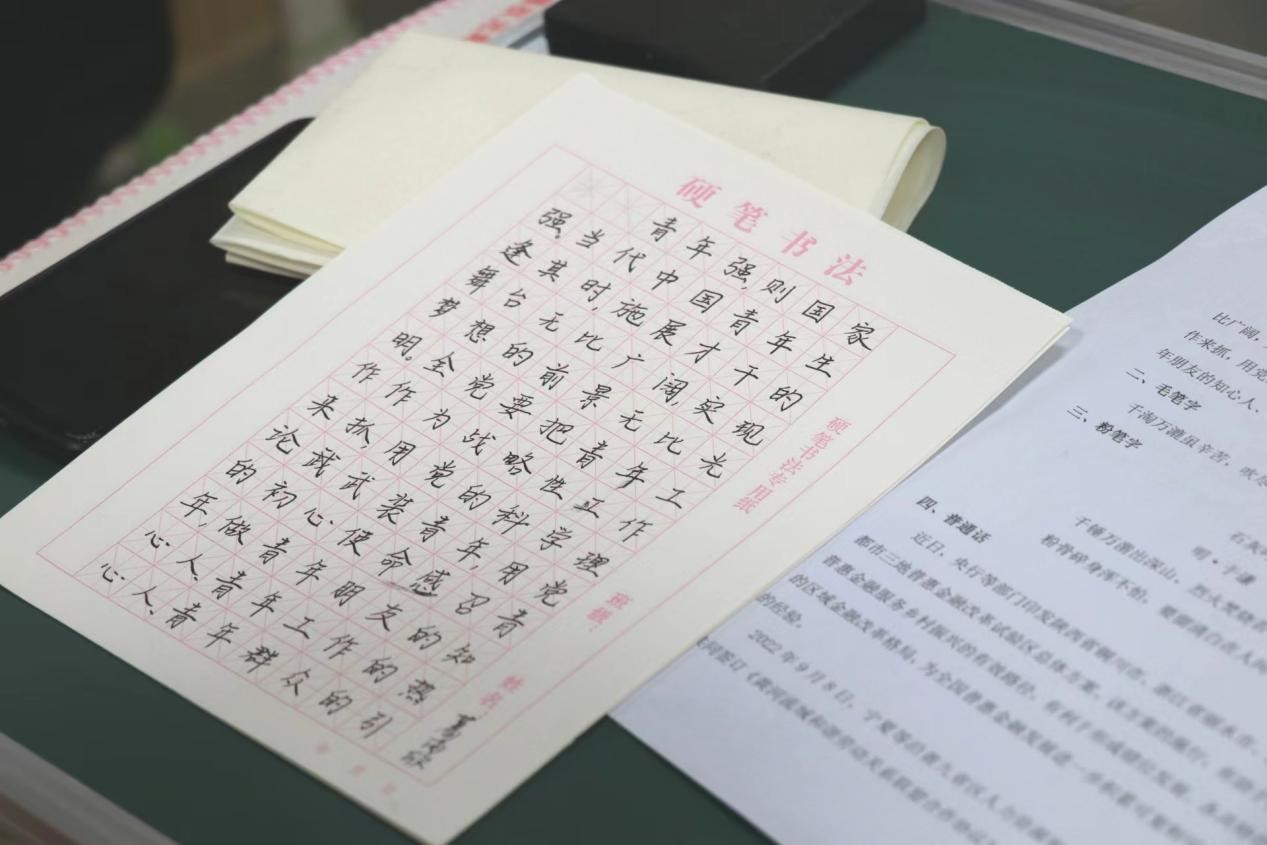 硬笔书法
青年强,则国家
强。当代中国青年生
逢其时,施展才干的
舞台无比广阔,实现
梦想的前景无比光
明。全党要把青年工
作作为战略性工作
来抓,用党的科学理
论武装青年,用党
的初心使命感召青
年,做青年朋友的知
心人、青年工作的热
心人、青年群众的引
硬笔书法专用纸
班级:
姓名:
比广阔,
作来抓,用党
年朋友的知心人、
二、毛笔字
千淘万漉虽辛苦,吹尽
三、粉笔字
千锤万凿出深山,烈火焚烧
粉骨碎身浑不怕,要留清白在人间
明·于谦
四、普通话
近日,央行等部门印发陕西省铜川市、浙江省丽水市、
都市三地普惠金融改革试验区总体方案。
普惠金融服务乡村振兴的有效路径,有利于形成
的区域金融改革格局,为全国普惠金融发展进一步积累可复制
的经验。
2022年9月8日,宁夏等沿黄九省区人力资源